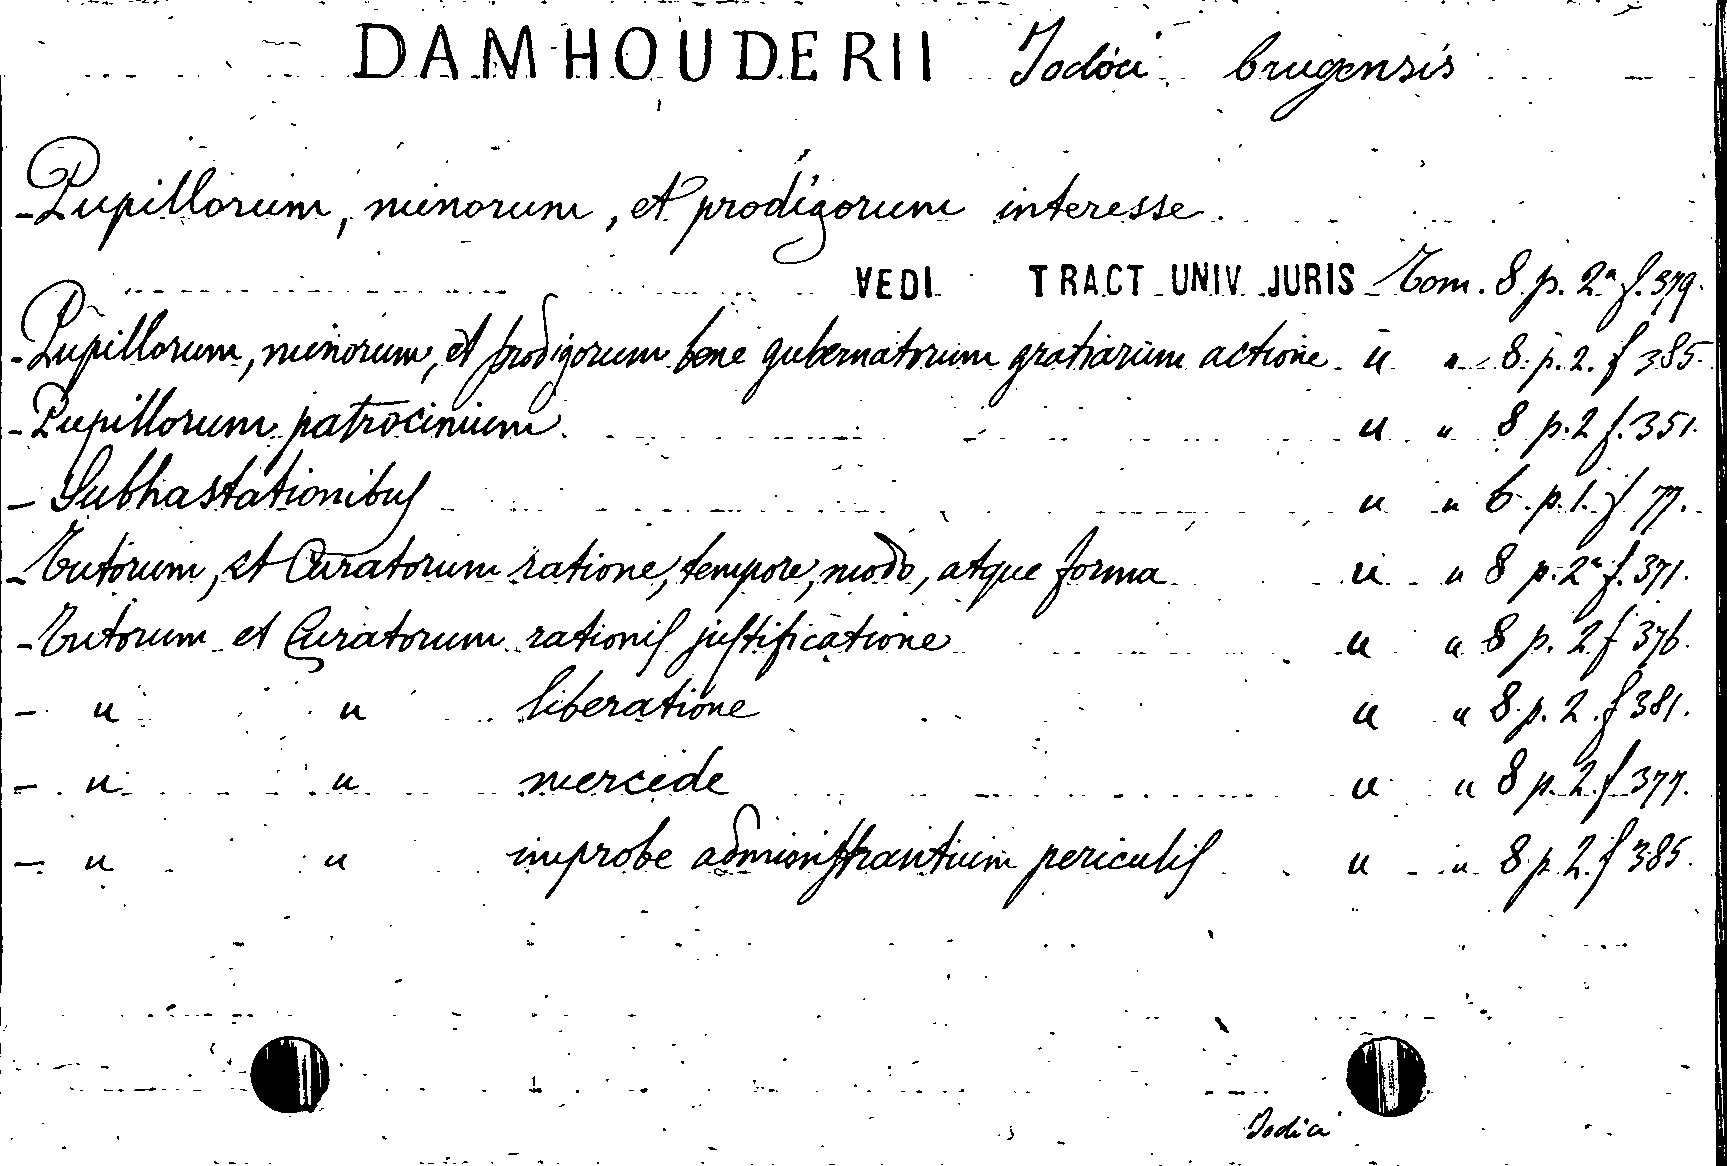 DAMHOUDERII Jodoci brugensis
- Pupillorum, minorum, et prodigorum interesse.
VEDI TRACT UNIV JURIS Tom. 8. p. 2ª f. 379.
- Pupillorum, minorum, et prodigorum bene gubernatorum gratiarum actione " " 8. p. 2. f 385.
- Pupillorum patrocinium " " 8 p. 2 f. 351.
- Subhastationibus " " 6. p. 1. f 77.
- Tutorum, et Curatorum ratione, tempore, modo, atque forma " " 8 p. 2ª f. 371.
- Tutorum et Curatorum rationis justificatione " " 8 p. 2 f 376.
- " " liberatione " " 8. p. 2. f 381.
- " " mercede " " 8 p. 2. f 377.
- " " improbe administrantium periculis " " 8. p. 2. f 385.
Jodici